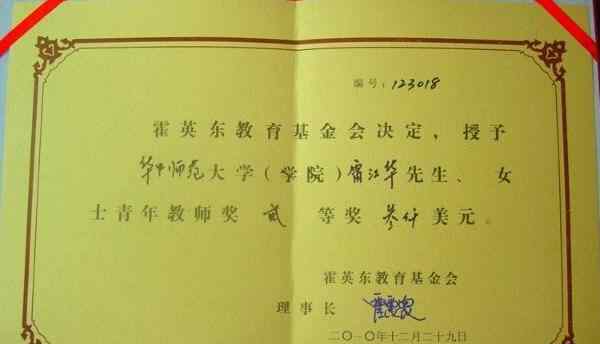 编号:123018
霍英东教育基金会决定，授予
华中师范大学(学院)雷江华先生、女
士青年教师奖 贰 等奖 叁仟美元。
霍英东教育基金会
理事长
二〇一〇年十二月二十九日